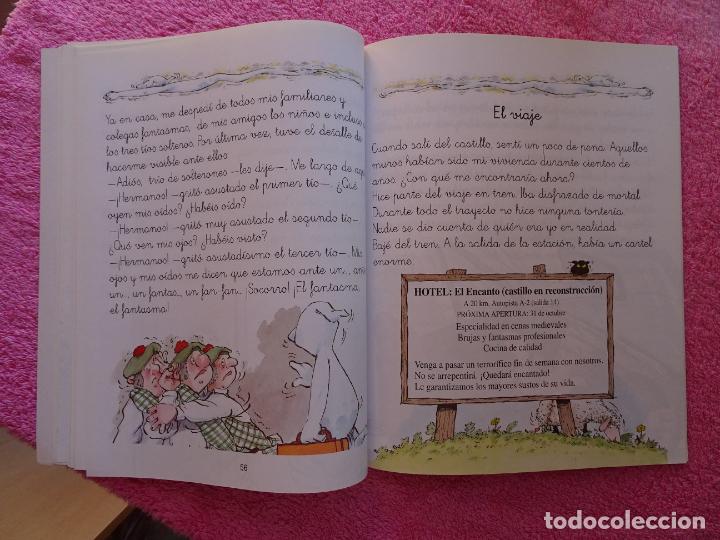 Ya en casa, me despedí de todos mis familiares y
colegas fantasmas, de mis amigos los niños e incluso de
los tres tíos solteros. Por última vez, tuve el detalle de
hacerme visible ante ellos:
—Adiós, trío de solterones —les dije—. Me largo de
—¡Hermanos! —gritó asustado el primer tío—. ¿Qué
oyen mis oídos? ¿Habéis oído?
—¡Hermanos! —gritó muy asustado el segundo tío—.
¿Qué ven mis ojos? ¿Habéis visto?
—¡Hermanos! —gritó asustadísimo el tercer tío—. Mis
ojos y mis oídos me dicen que estamos ante un..., ante
un..., un fantas..., un fan..fan... ¡Socorro! ¡El fantasma,
el fantasma!
56
El viaje
Cuando salí del castillo, sentí un poco de pena. Aquellos
muros habían sido mi vivienda durante cientos de
años. ¿Con qué me encontraría ahora?
Hice parte del viaje en tren. Iba disfrazado de mortal.
Durante todo el trayecto no hice ninguna tontería.
Nadie se dio cuenta de quién era yo en realidad.
Bajé del tren. A la salida de la estación, había un cartel
enorme.
HOTEL: El Encanto (castillo en reconstrucción)
A 20 km. Autopista A-2 (salida 14)
PRÓXIMA APERTURA: 31 de octubre
Especialidad en cenas medievales
Brujas y fantasmas profesionales
Cocina de calidad
Venga a pasar un terrorífico fin de semana con nosotros.
No se arrepentirá. ¡Quedará encantado!
Le garantizamos los mayores sustos de su vida.
todocoleccion.net